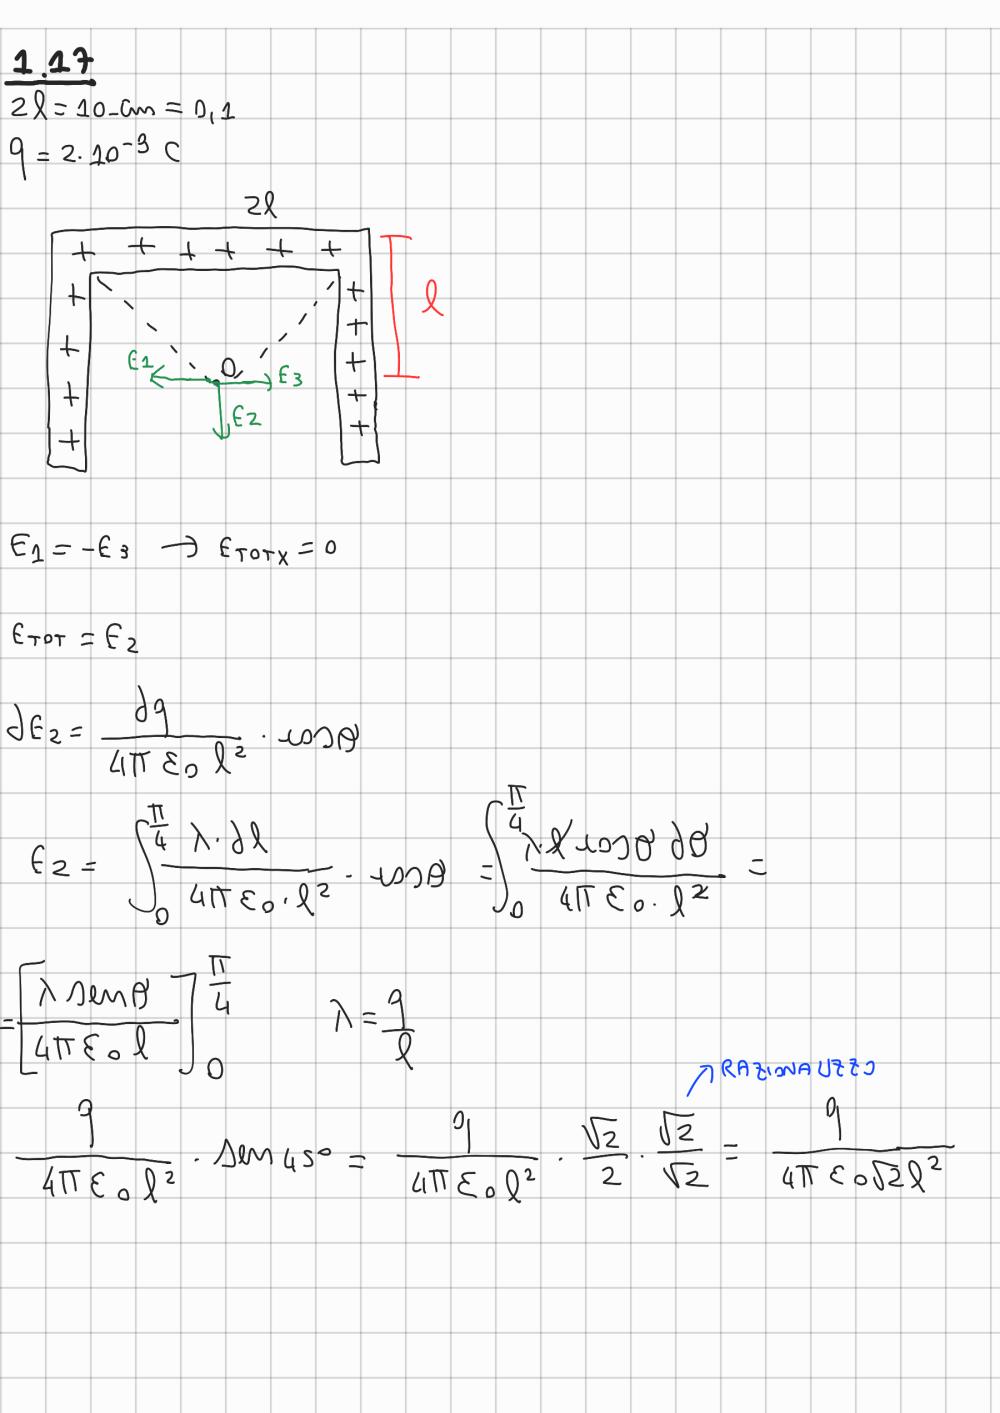 1.17
2l = 10 cm = 0,1
q = 2·10⁻⁹ C
2l
+ + + + + +
+ + + + l
+ + + + +
E1 O E3
E2
E1 = -E3 → ETOTX = 0
ETOT = E2
dE2 = dq / 4π ε0 l² · cosθ
E2 = ∫₀^(π/4) λ·dl / 4π ε0·l² · cosθ = ∫₀^(π/4) λ l cosθ dθ / 4π ε0·l² =
= [λ senθ / 4π ε0 l]₀^(π/4) λ = q/l
RAZIONALIZZO
q / 4π ε0 l² · sen 45° = q / 4π ε0 l² · √2/2 · √2/√2 = q / 4π ε0 √2 l²